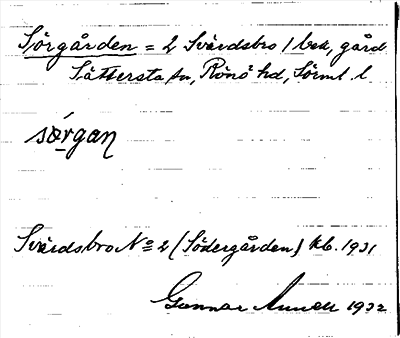 Sörgården = 2 Svärdsbro / bek, gård
Sättersta sn, Rönö hd, Sörml. l.
sörgan
Svärdsbro No 2 (Södergården) kb. 1931
Gunnar 1932